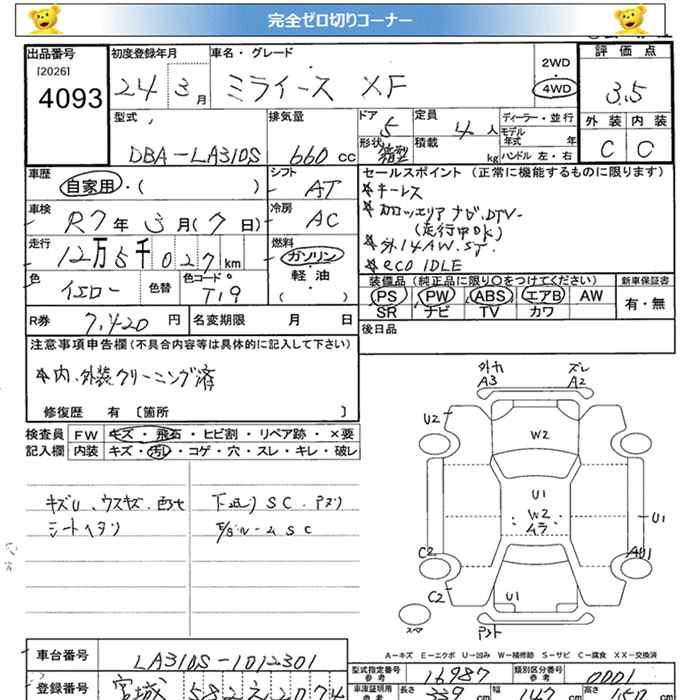 完全ゼロ切りコーナー
出品番号 初度登録年月 車名・グレード 2WD 評価点
[2026] 4093 24 3月 ミライース XF 4WD 3.5
型式 排気量 ドア 5 定員 4人 ディーラー・並行 外装 内装
モデル年式 年
DBA-LA310S 660cc 形状 箱型 積載 kg ハンドル 左・右 C C
車歴 自家用・( ) シフト AT セールスポイント (正常に機能するものに限ります)
車検 R7年3月(7日) 冷房 AC
走行 12万5千027km 燃料 ガソリン・軽・油・( )
色 イエロー 色替 色コード T19
キーレス
ナビ.DTV
(走行中OK)
外14AW.ST.
eco IDLE
装備品 (純正品に限り〇をつけてください) 新車保証書
PS PW ABS エアB AW 有・無
SR ナビ TV カワ
R券 7,420円 名変期限 月 日 後日品
注意事項申告欄(不具合内容等は具体的に記入して下さい)
内、外装クリーニング済
修復歴 有 〔箇所 〕
検査員 FW キズ・飛石・ヒビ割・リペア跡・×要
記入欄 内装 キズ・汚レ・コゲ・穴・スレ・キレ・破レ
キズU、ウスキズ、色アセ 下廻り SC、
シートヘタリ SC
A3 ズレ A2
U2 W2
U1 W2 ムラ U1
C2 AU1
C2 U1
スペア
A=キズ E=エクボ U=凹み W=補修跡 S=サビ C=腐食 XX=交換済
車台番号 LA310S-1012301 型式指定番号 16987 類別区分番号 0001
登録番号 宮城 582 え 2074 車庫証明用参考 長さ 339 幅 147 高さ 150